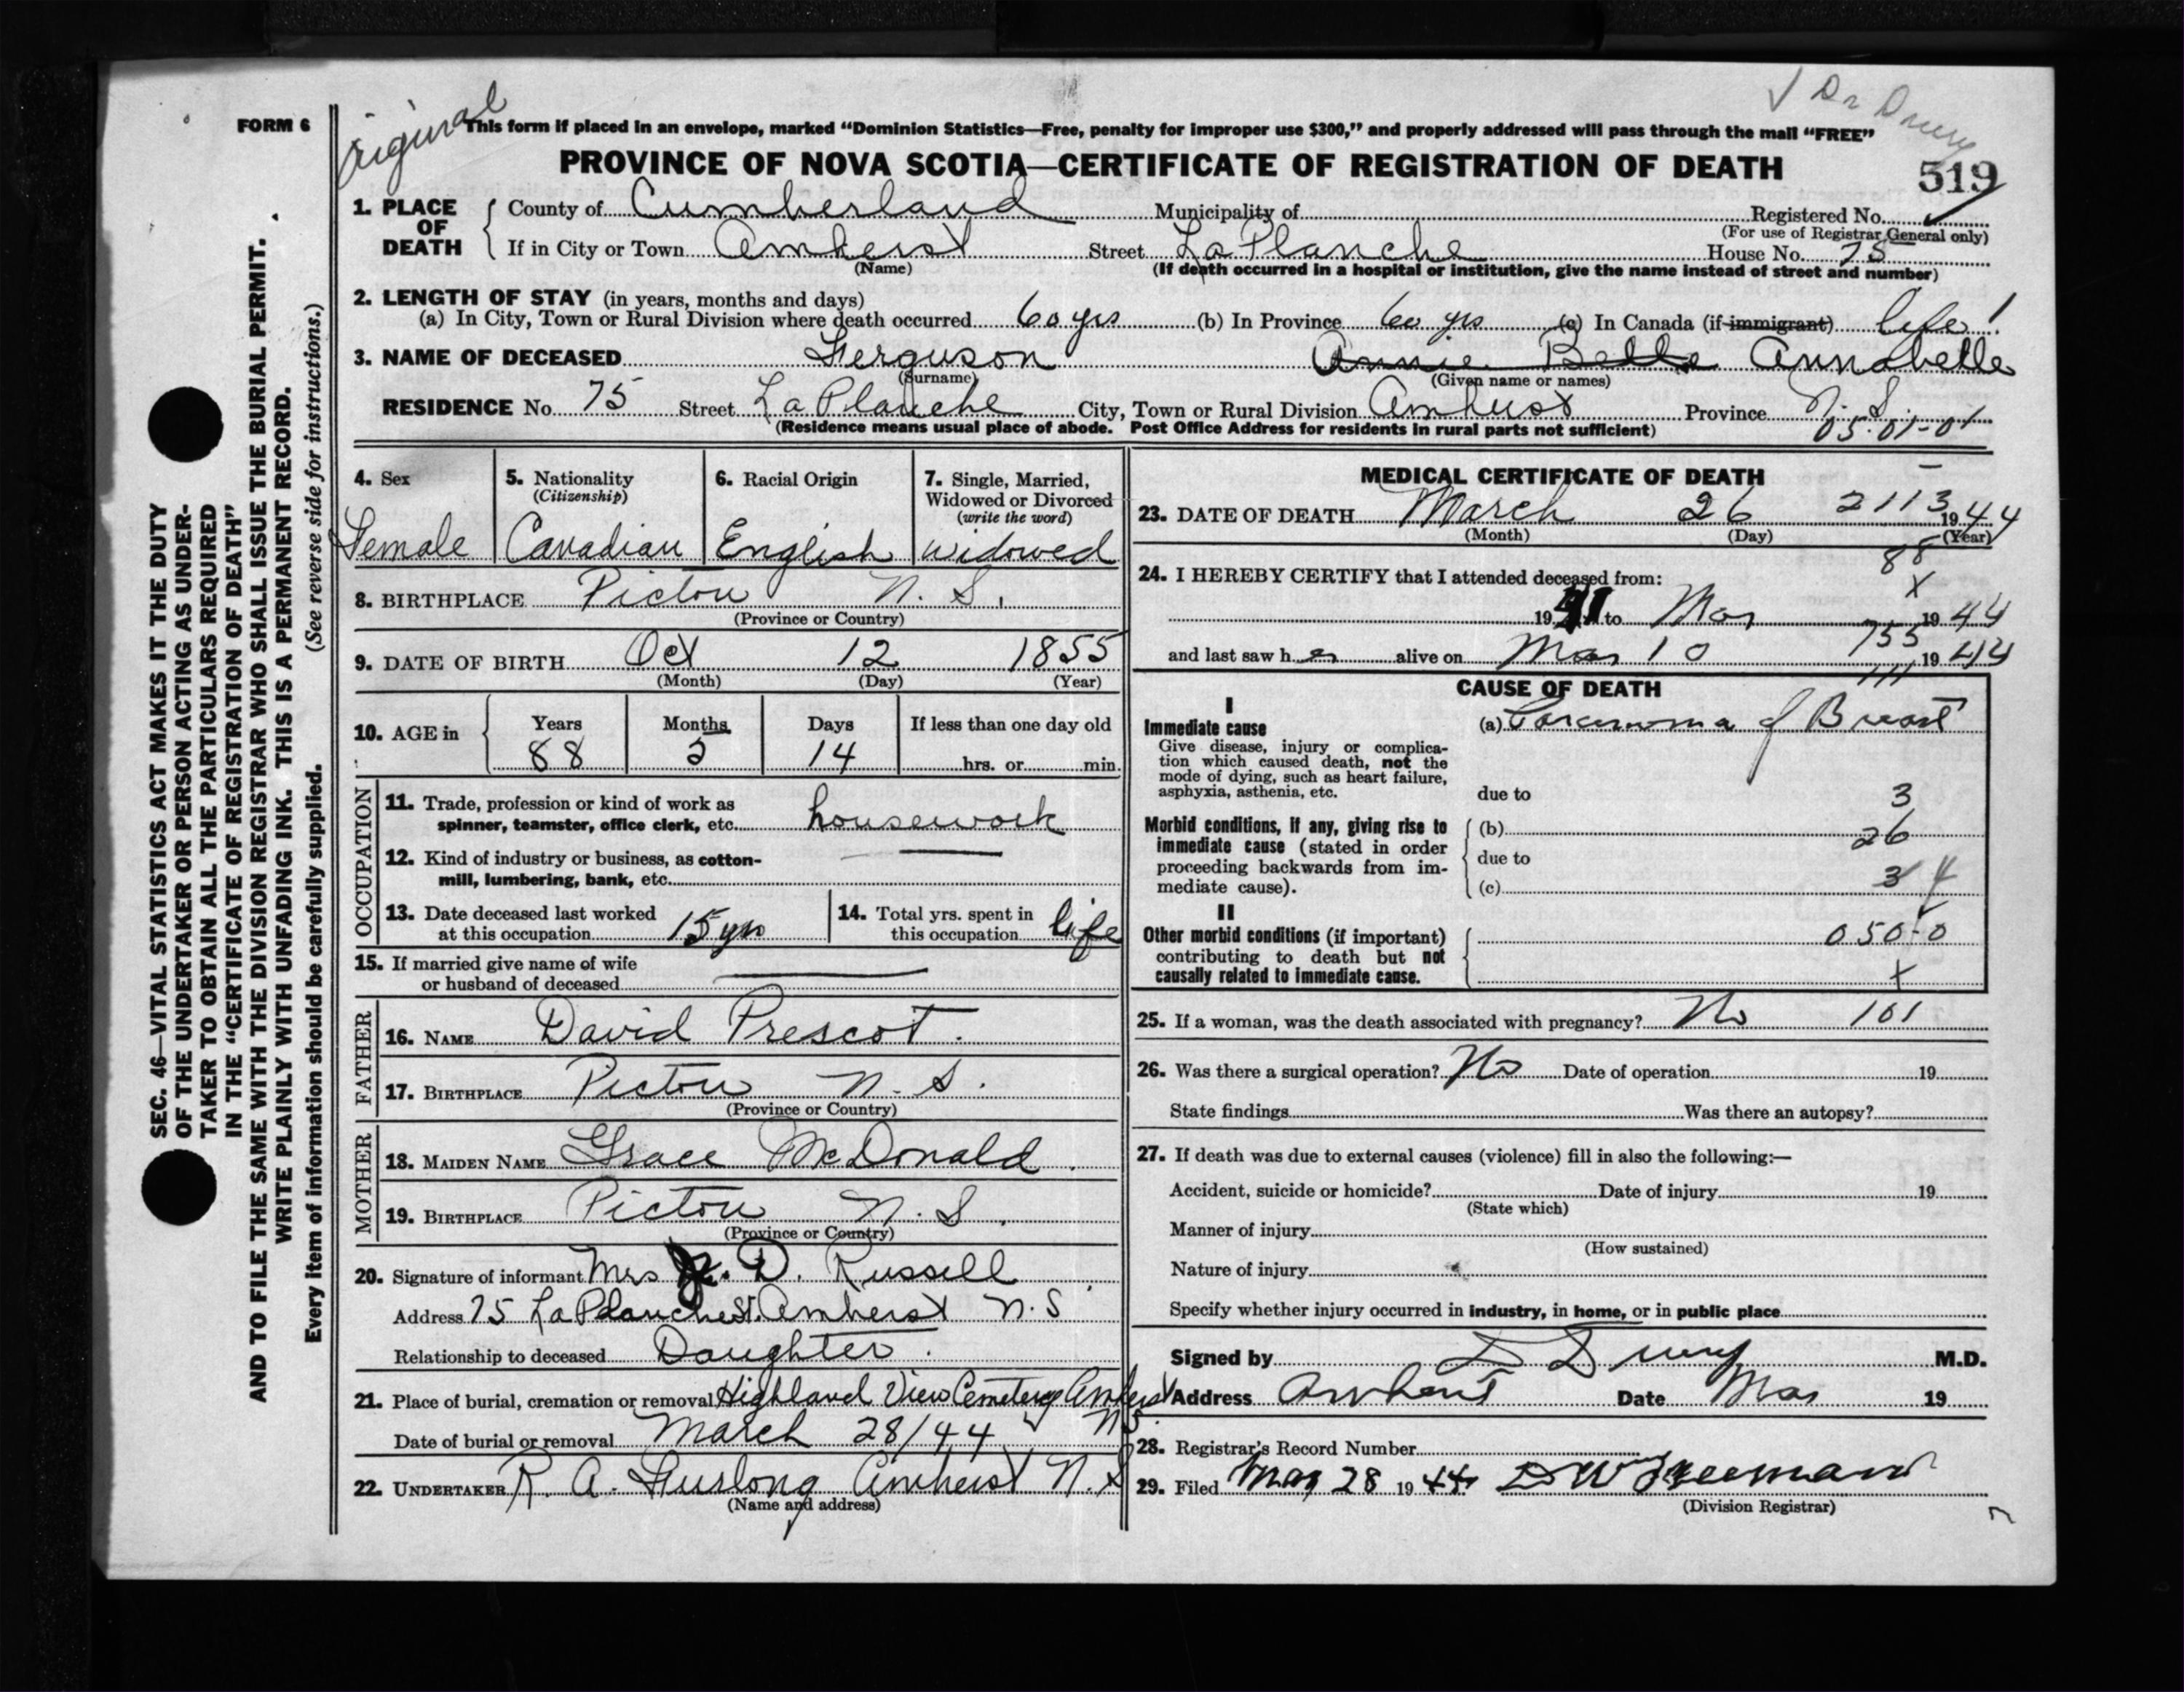 Original
✓ Dr Drury
FORM 6
This form if placed in an envelope, marked "Dominion Statistics—Free, penalty for improper use $300," and properly addressed will pass through the mail "FREE"
PROVINCE OF NOVA SCOTIA—CERTIFICATE OF REGISTRATION OF DEATH
519
1. PLACE OF DEATH County of Cumberland Municipality of Registered No.
(For use of Registrar General only)
If in City or Town Amherst Street LaPlanche House No. 75
(Name) (If death occurred in a hospital or institution, give the name instead of street and number)
2. LENGTH OF STAY (in years, months and days)
(a) In City, Town or Rural Division where death occurred 60 yrs (b) In Province 60 yrs (c) In Canada (if immigrant) life!
3. NAME OF DECEASED Ferguson Annie Belle Annabelle
(Surname) (Given name or names)
RESIDENCE No. 75 Street La Planche City, Town or Rural Division Amherst Province N. S.
05-01-01
(Residence means usual place of abode. Post Office Address for residents in rural parts not sufficient)
4. Sex 5. Nationality (Citizenship) 6. Racial Origin 7. Single, Married, Widowed or Divorced (write the word)
Female Canadian English widowed
8. BIRTHPLACE Pictou N. S.
(Province or Country)
9. DATE OF BIRTH Oct 12 1855
(Month) (Day) (Year)
10. AGE in Years Months Days If less than one day old
88 5 14 hrs. or min.
OCCUPATION
11. Trade, profession or kind of work as
spinner, teamster, office clerk, etc. housework
12. Kind of industry or business, as cotton-
mill, lumbering, bank, etc. —
13. Date deceased last worked
at this occupation 15 yrs
14. Total yrs. spent in
this occupation life
15. If married give name of wife
or husband of deceased —
FATHER
16. NAME David Prescot.
17. BIRTHPLACE Pictou N. S.
(Province or Country)
MOTHER
18. MAIDEN NAME Grace McDonald.
19. BIRTHPLACE Pictou N. S.
(Province or Country)
20. Signature of informant Mrs D. Russell
Address 75 LaPlanche St. Amherst N. S
Relationship to deceased Daughter.
21. Place of burial, cremation or removal Highland View Cemetery Amherst
N.S.
Date of burial or removal March 28/44
22. UNDERTAKER R. A. Furlong Amherst N. S
(Name and address)
MEDICAL CERTIFICATE OF DEATH
23. DATE OF DEATH March 26 2113 1944
(Month) (Day) (Year)
88
x
24. I HEREBY CERTIFY that I attended deceased from:
1941 to Mar 1944
755
and last saw her alive on Mar 10 1944
111
CAUSE OF DEATH
I
Immediate cause (a) Carcinoma of Breast
Give disease, injury or complica-
tion which caused death, not the
mode of dying, such as heart failure,
asphyxia, asthenia, etc.
due to 3
Morbid conditions, if any, giving rise to
immediate cause (stated in order
proceeding backwards from im-
mediate cause).
(b) 26
due to
(c) 3 4
II
Other morbid conditions (if important)
contributing to death but not
causally related to immediate cause.
050-0
x
25. If a woman, was the death associated with pregnancy? No 101
26. Was there a surgical operation? No Date of operation 19
State findings Was there an autopsy?
27. If death was due to external causes (violence) fill in also the following:—
Accident, suicide or homicide? Date of injury 19
(State which)
Manner of injury
(How sustained)
Nature of injury
Specify whether injury occurred in industry, in home, or in public place
Signed by D Drury M.D.
Address Amherst Date Mar 19
28. Registrar's Record Number
29. Filed Mar 28 1944 D W Freeman
(Division Registrar)
SEC. 46—VITAL STATISTICS ACT MAKES IT THE DUTY
OF THE UNDERTAKER OR PERSON ACTING AS UNDER-
TAKER TO OBTAIN ALL THE PARTICULARS REQUIRED
IN THE "CERTIFICATE OF REGISTRATION OF DEATH"
AND TO FILE THE SAME WITH THE DIVISION REGISTRAR WHO SHALL ISSUE THE BURIAL PERMIT.
WRITE PLAINLY WITH UNFADING INK. THIS IS A PERMANENT RECORD.
Every item of information should be carefully supplied. (See reverse side for instructions.)